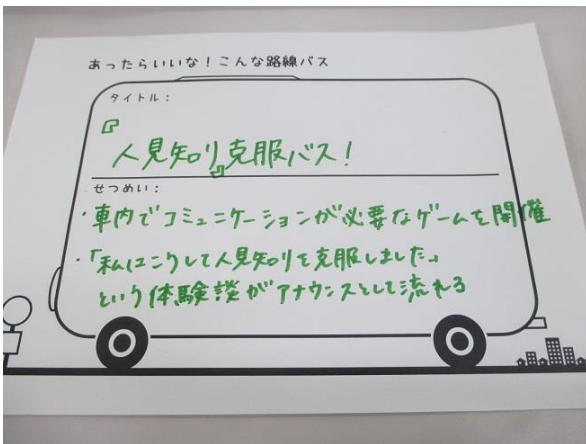 あったらいいな！こんな路線バス
タイトル：
『人見知り』克服バス！
せつめい：
・車内でコミュニケーションが必要なゲームを開催
・「私はこうして人見知りを克服しました」
という体験談がアナウンスとして流れる